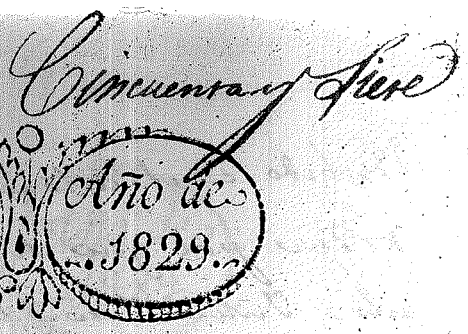 Cincuenta y Siete
Año de
1829.